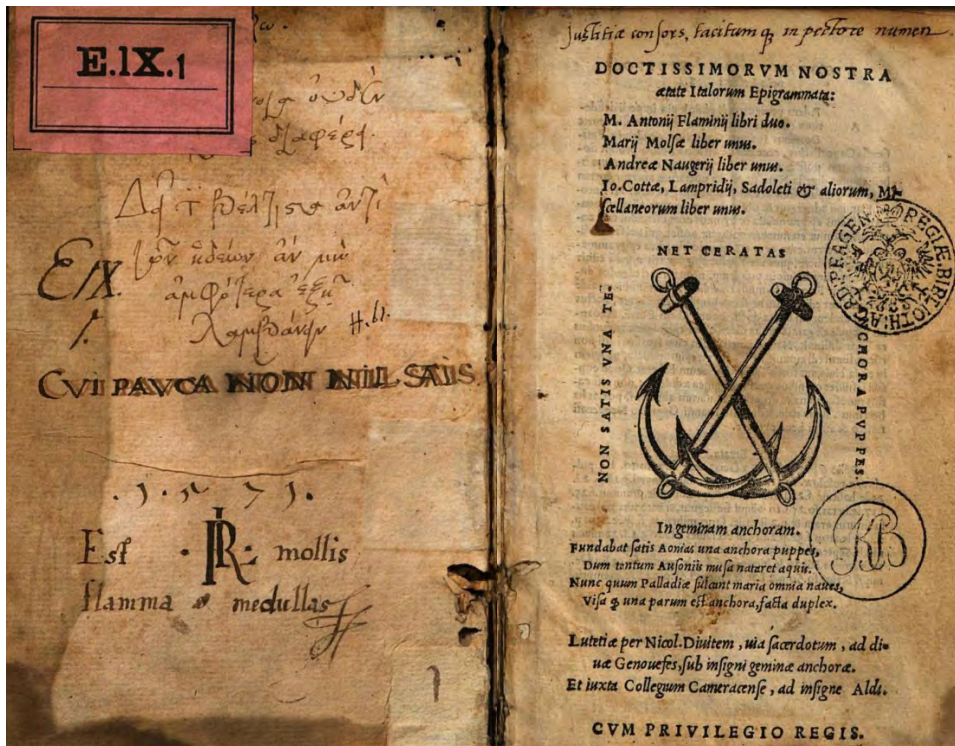 E.IX.1
λαμβάνειν
E/IX.
1.
CVI PAVCA NON NIL SATIS
Est mollis
flamma medullas
Justitiæ consors, tacitumq in pectore numen
DOCTISSIMORVM NOSTRA
ætate Italorum Epigrammata:
M. Antonij Flaminij libri duo.
Marij Molsæ liber unus.
Andreæ Naugerij liber unus.
Io.Cottæ, Lampridij, Sadoleti & aliorum, Mi-
scellaneorum liber unus.
NON SATIS VNA TE-
NET CERATAS
CHORA PVPPES.
In geminam anchoram.
Fundabat satis Aonias una anchora puppes,
Dum tentum Ausoniis musa nataret aquis.
Nunc quum Palladiæ sulcant maria omnia naues,
Visa q una parum est anchora, facta duplex.
KB
Lutetiæ per Nicol. Diuitem, uia sacerdotum, ad di-
uæ Genouefes, sub insigni geminæ anchoræ.
Et iuxta Collegium Cameracense, ad insigne Aldi.
CVM PRIVILEGIO REGIS.